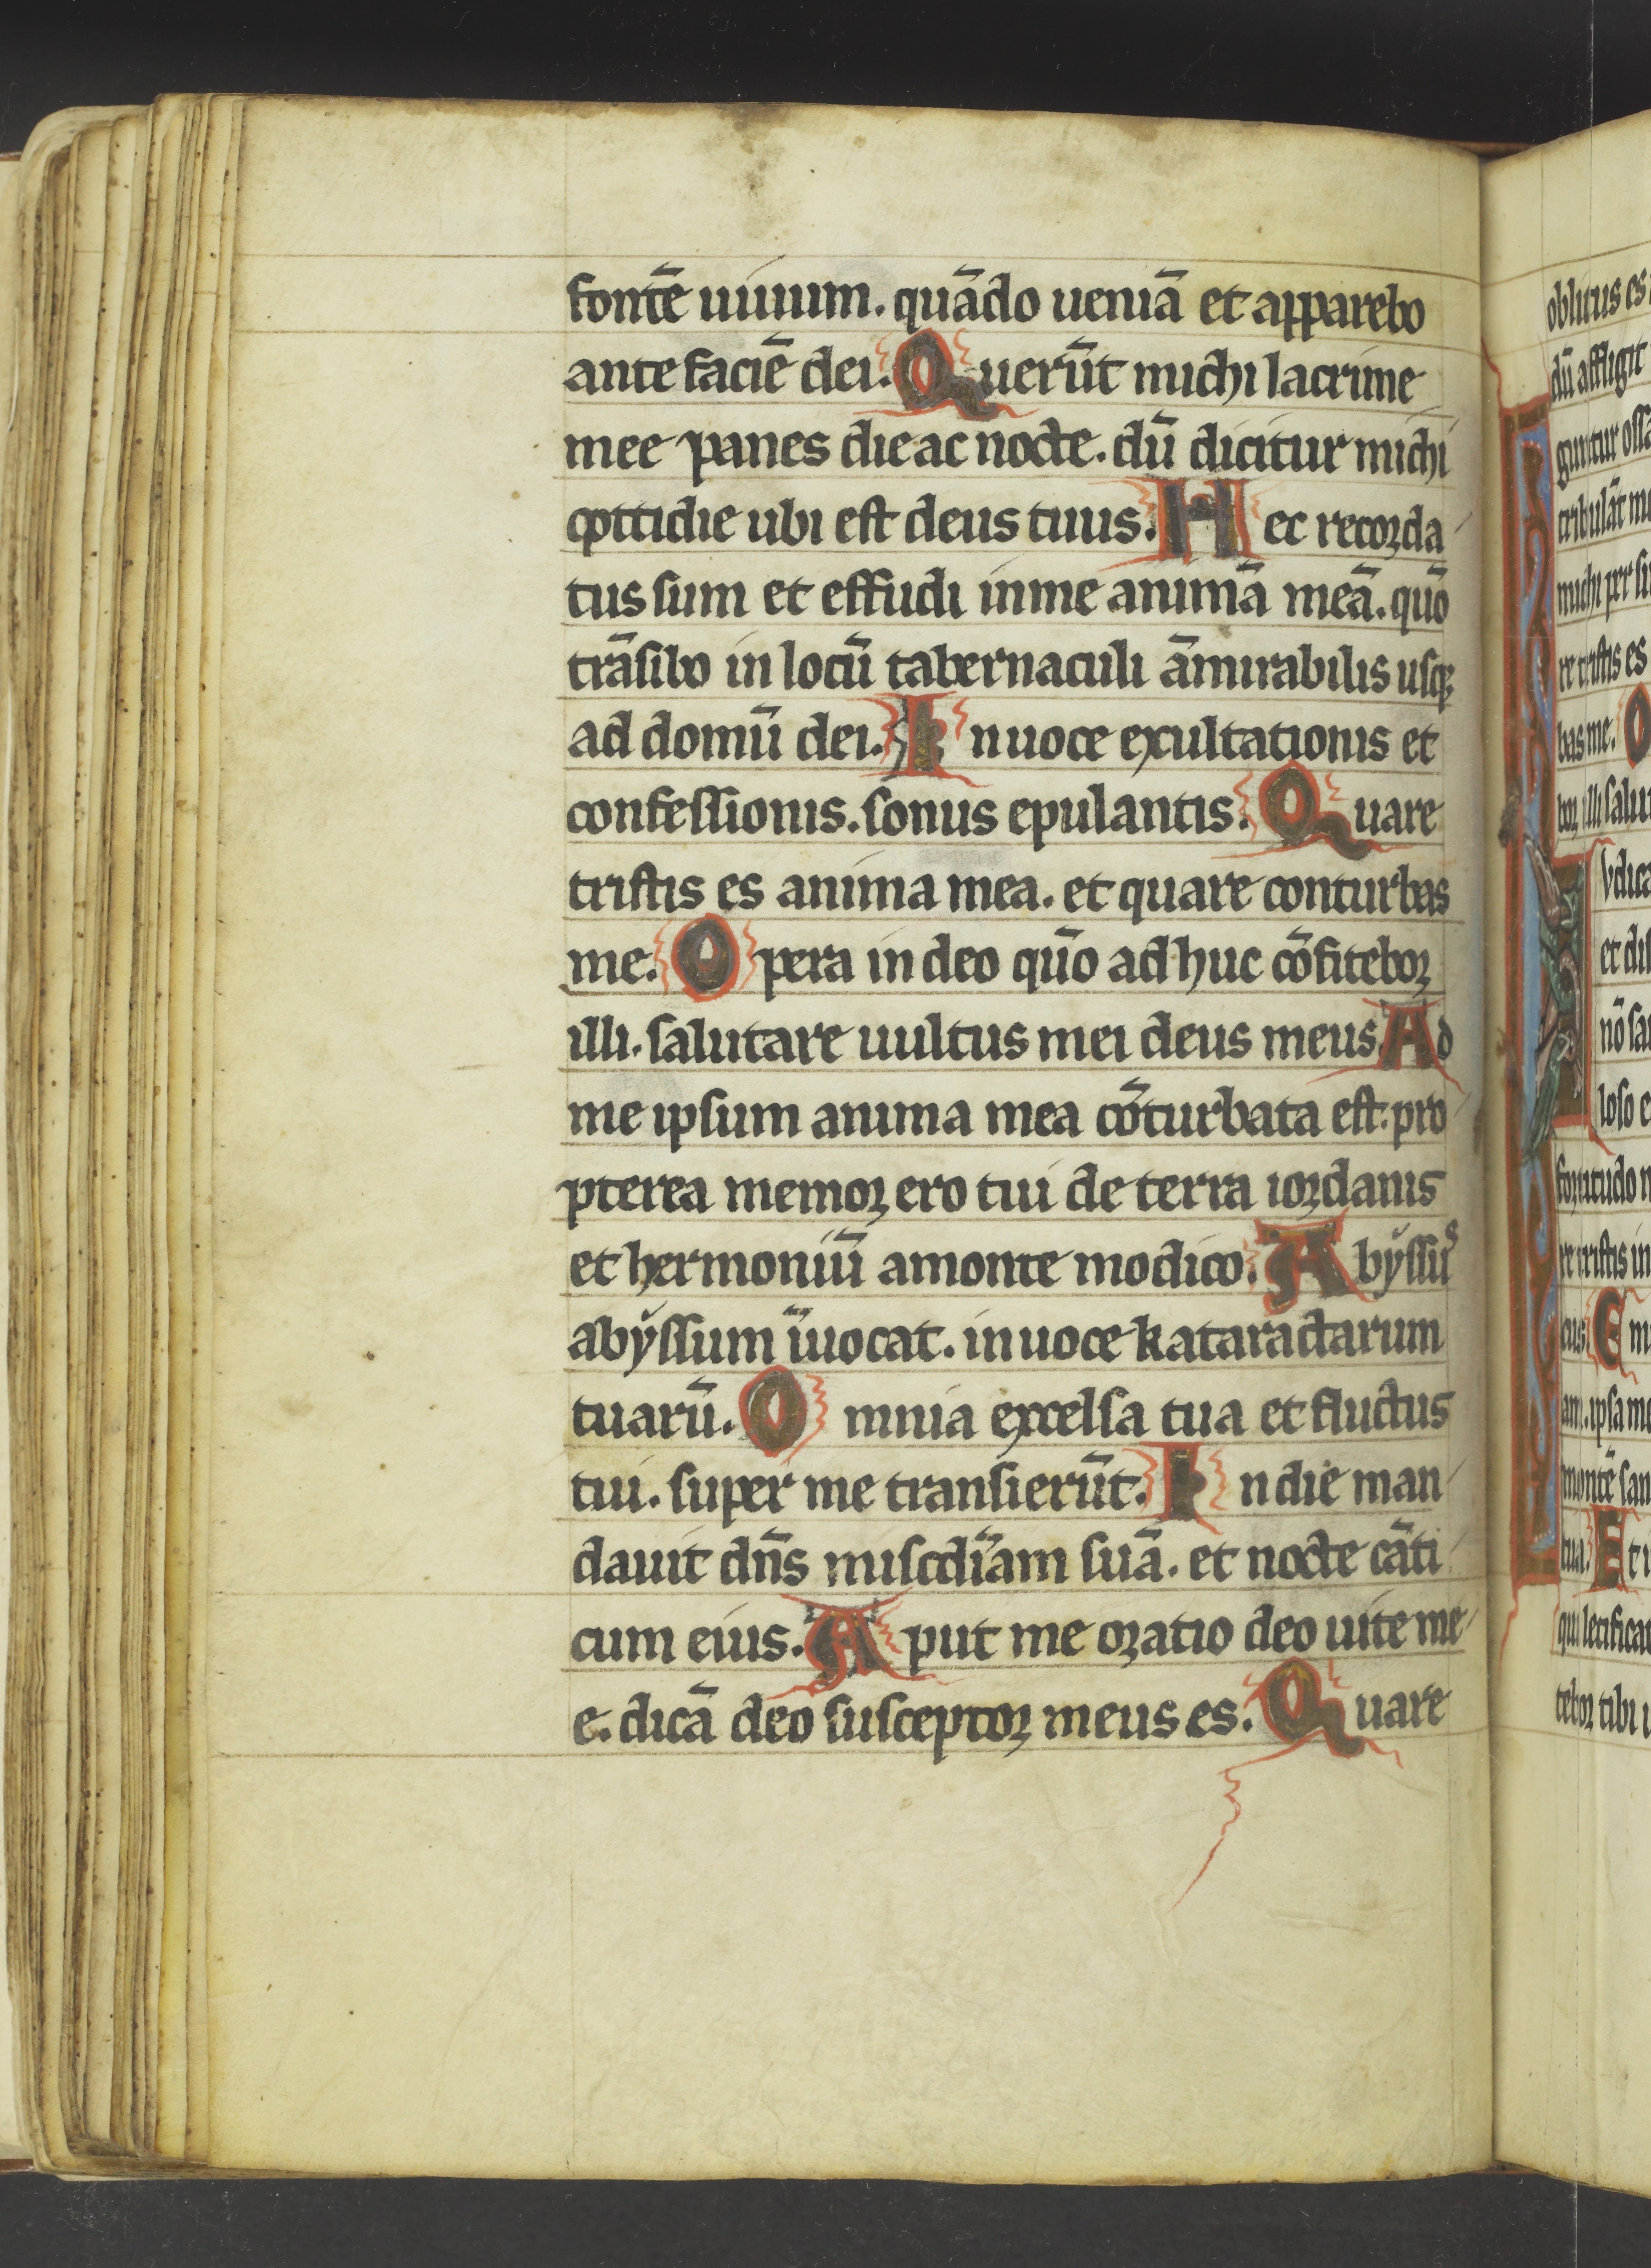 fontē uiuum. quādo ueniā et apparebo
ante faciē dei. Querūt michi lacrime
mee panes die ac nocte. dū dicitur michi
cottidie ubi est deus tuus. Hec recorda
tus sum et effudi in me animā meā. quō
trāsibo in locū tabernaculi āmirabilis usq;
ad domū dei. In uoce exultationis et
confessionis. sonus epulantis. Quare
tristis es anima mea. et quare conturbas
me. Opera in deo quō adhuc cōfitebor
illi. salutare uultus mei deus meus. Ad
me ipsum anima mea cōturbata est. pro
pterea memor ero tui de terra iordanis
et hermoniū a monte modico. Abyssus
abyssum īuocat. in uoce kataractarum
tuarū. Omnia excelsa tua et fluctus
tui. super me transierūt. In die man
dauit dn̄s misc̄diam suā. et nocte cāti
cum eius. Aput me oratio deo uite me
e. dicā deo susceptor meus es. Quare
oblitus es
dū affligit
guntur ossa
tribulāt me
michi per si
re tristis es
bas me. O
bor illi salu
Iudica
et dis
nō san
loso e
fortitudo m
re tristis in
cus. Em
am. ipsa me
montē san
tua. Et i
qui letificat
tebor tibi i